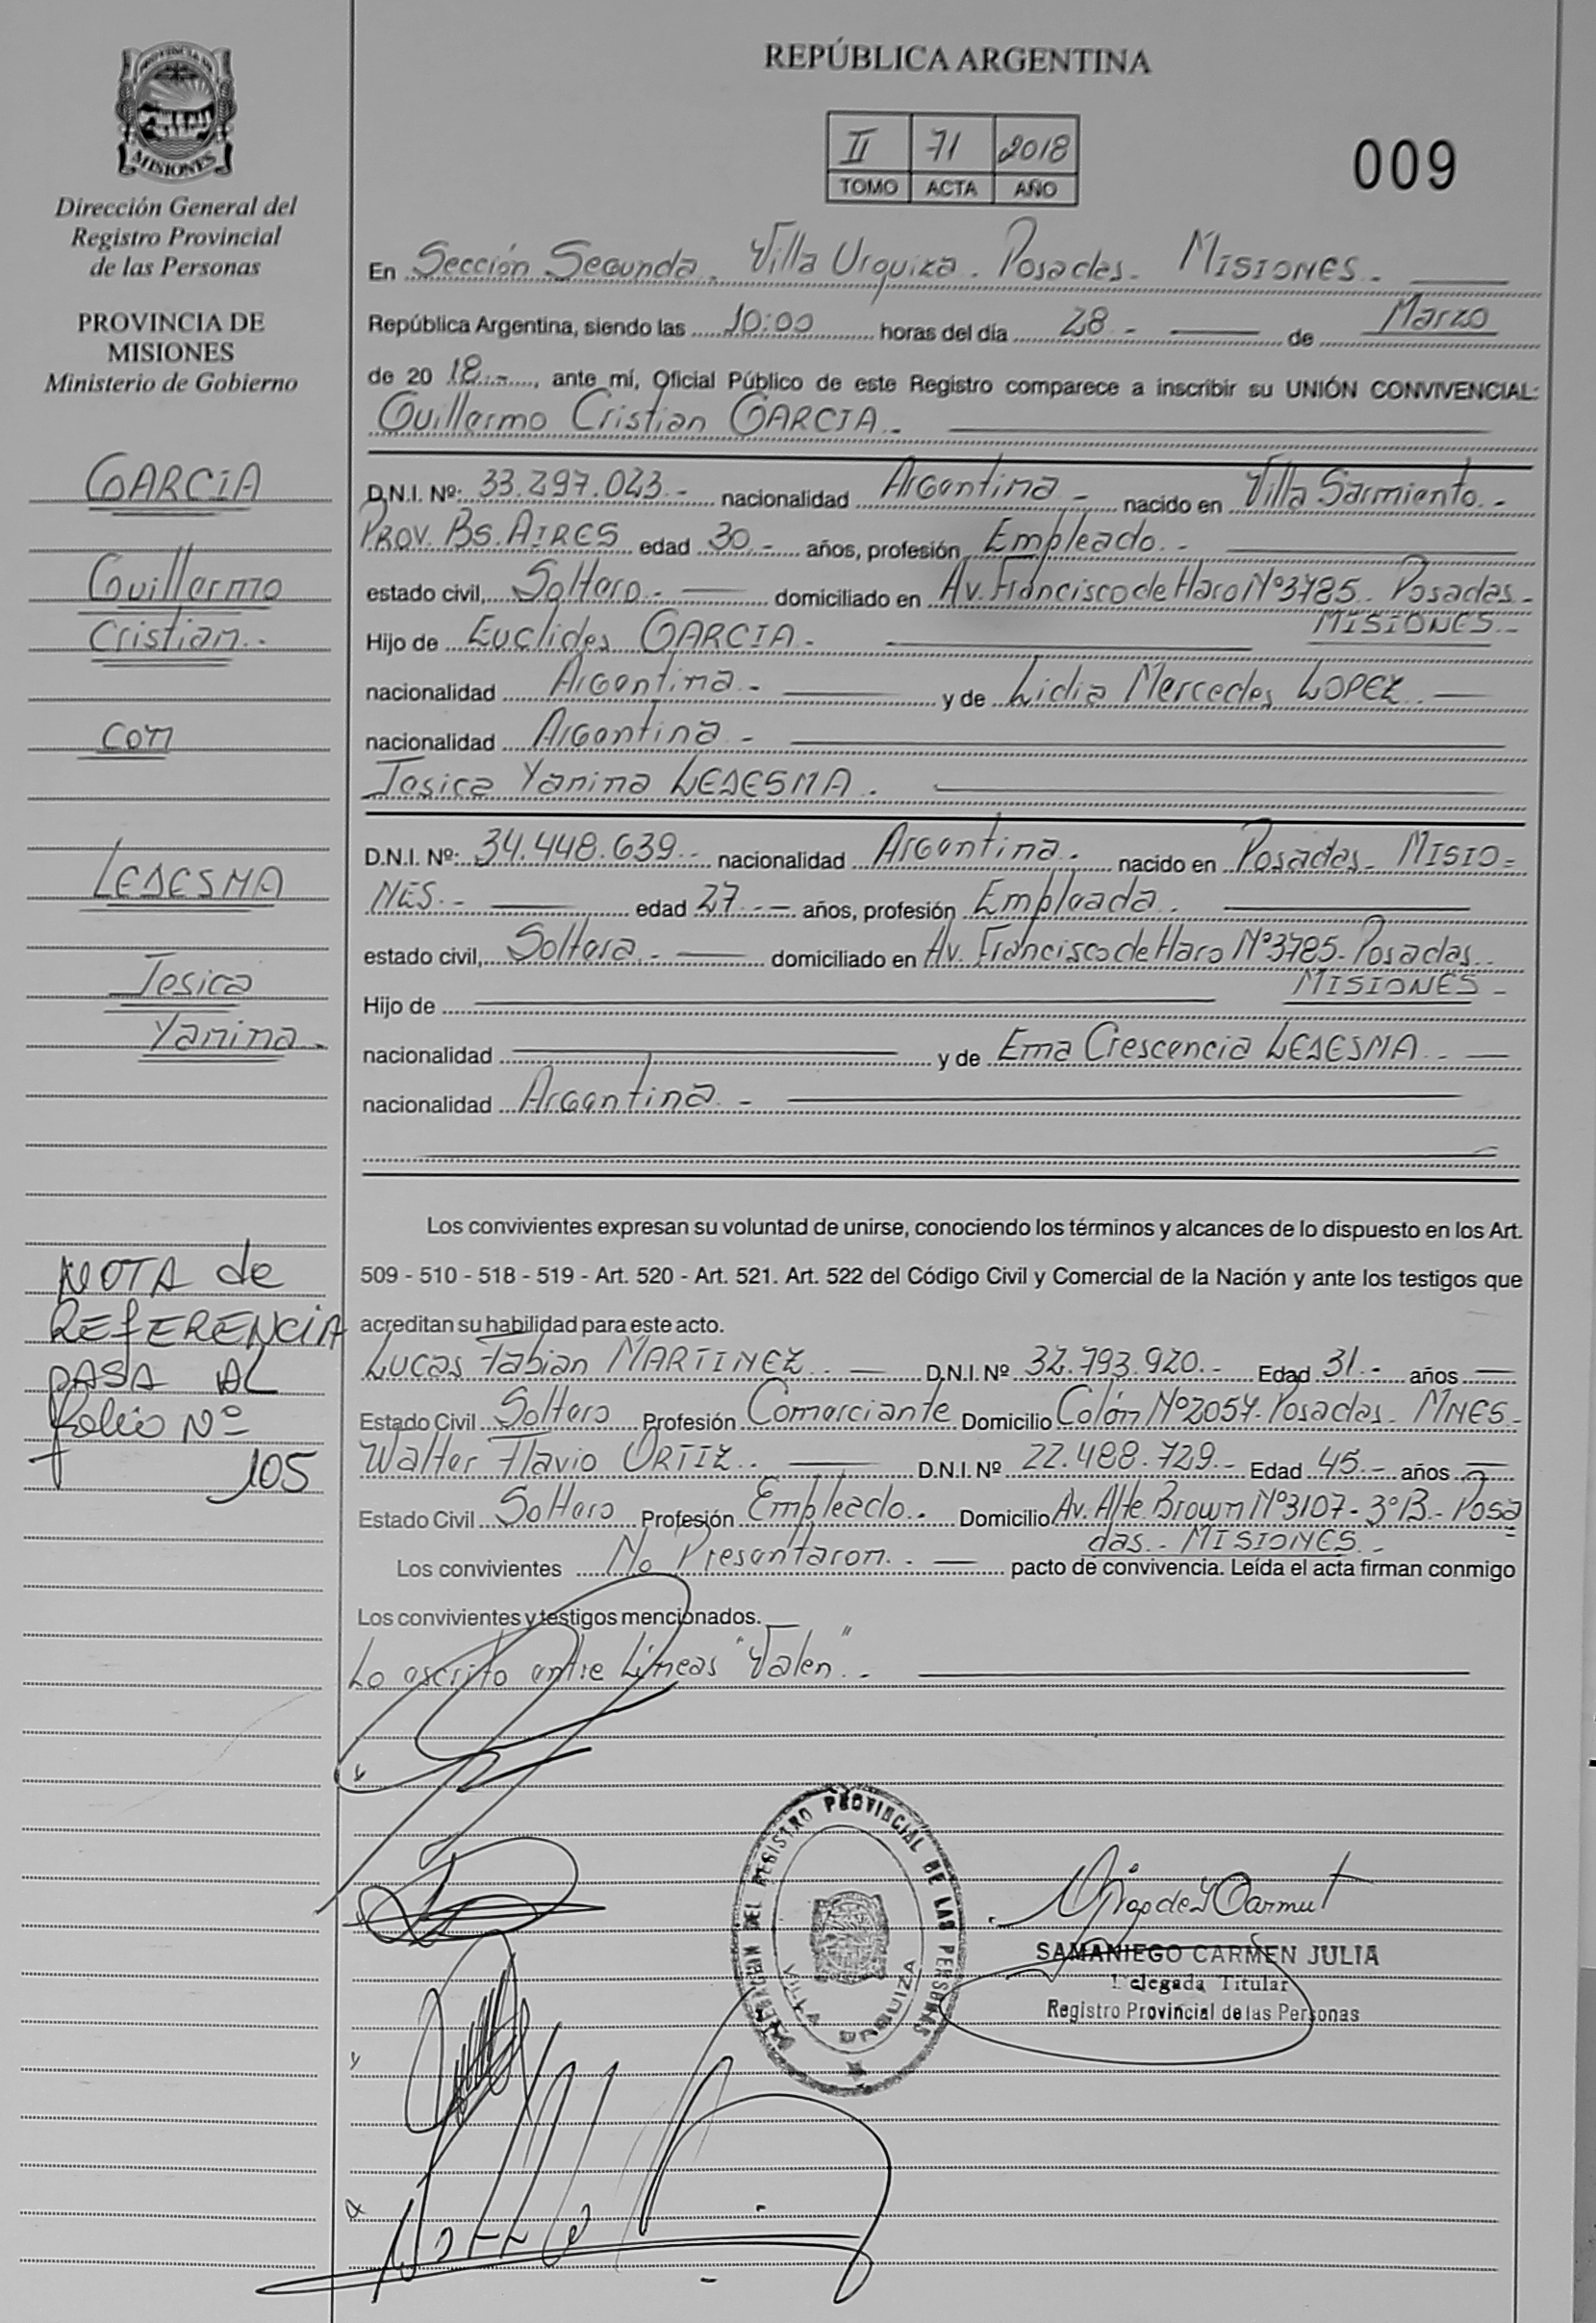 MISIONES
Dirección General del
Registro Provincial
de las Personas
PROVINCIA DE
MISIONES
Ministerio de Gobierno
GARCIA
Guillermo
Cristian.-
con
LEDESMA
Jesica
Yanina.-
NOTA de
REFERENCIA
PASA AL
folio Nº
105
REPÚBLICA ARGENTINA
II 71 2018
TOMO ACTA AÑO
009
En Sección Segunda. Villa Urquiza. Posadas. MISIONES.-
República Argentina, siendo las 10:00 horas del día 28.- de Marzo
de 20 18.-, ante mí, Oficial Público de este Registro comparece a inscribir su UNIÓN CONVIVENCIAL:
Guillermo Cristian GARCIA.-
D.N.I. Nº: 33.297.023.- nacionalidad Argentina.- nacido en Villa Sarmiento.-
PROV. BS. AIRES edad 30.- años, profesión Empleado.-
estado civil, Soltero.- domiciliado en Av. Francisco de Haro Nº3785. Posadas.-
MISIONES.-
Hijo de Euclides GARCIA.-
nacionalidad Argentina.- y de Lidia Mercedes LOPEZ.
nacionalidad Argentina.-
Jesica Yanina LEDESMA.
D.N.I. Nº: 34.448.639.- nacionalidad Argentina. nacido en Posadas. MISIO=
NES.- edad 27.- años, profesión Empleada.
estado civil, Soltera.- domiciliado en Av. Francisco de Haro Nº3785. Posadas.
MISIONES.-
Hijo de
nacionalidad y de Ema Crescencia LEDESMA.-
nacionalidad Argentina.-
Los convivientes expresan su voluntad de unirse, conociendo los términos y alcances de lo dispuesto en los Art.
509 - 510 - 518 - 519 - Art. 520 - Art. 521. Art. 522 del Código Civil y Comercial de la Nación y ante los testigos que
acreditan su habilidad para este acto.
Lucas Fabian MARTINEZ.- D.N.I. Nº 32.793.920.- Edad 31.- años
Estado Civil Soltero Profesión Comerciante Domicilio Colón Nº2057. Posadas. MNES.-
Walter Flavio ORTIZ.- D.N.I. Nº 22.488.729.- Edad 45.- años
Estado Civil Soltero Profesión Empleado.- Domicilio Av. Alte. Brown Nº3107-3ºB.- Posa=
das.- MISIONES.-
Los convivientes No Presentaron.- pacto de convivencia. Leída el acta firman conmigo
Los convivientes y testigos mencionados.
Lo escrito entre Líneas "Valen".-
DELEGACION DEL REGISTRO PROVINCIAL DE LAS PERSONAS
VILLA URQUIZA
SAMANIEGO CARMEN JULIA
Delegada Titular
Registro Provincial de las Personas